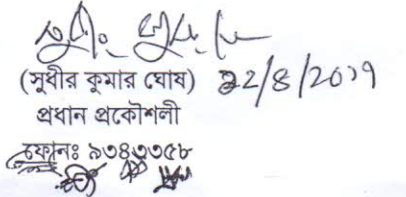 (সুধীর কুমার ঘোষ) 22/8/2017
প্রধান প্রকৌশলী
ফোনঃ ৯৩৪৩৩৫৮